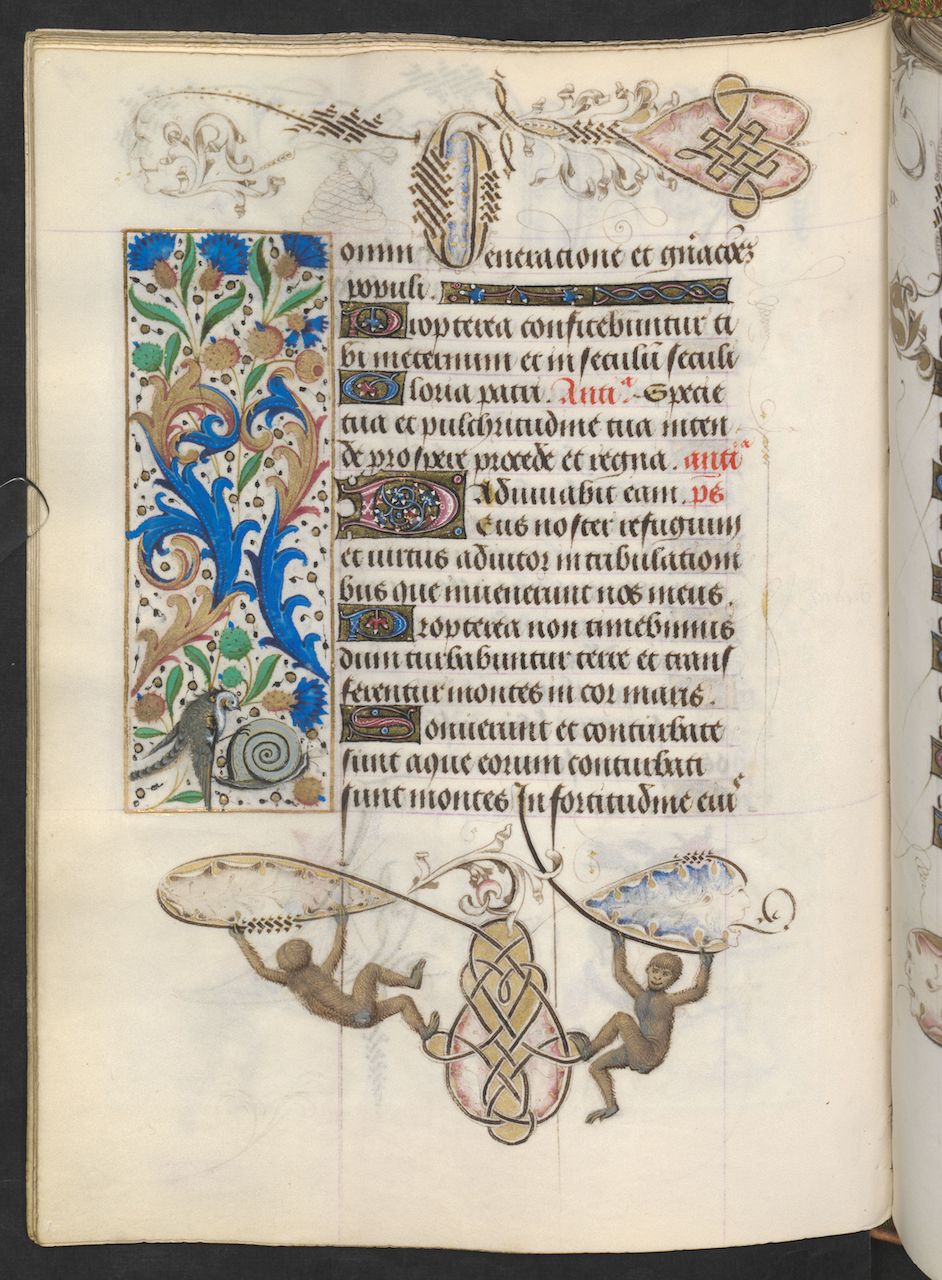 omni Generatione et gn̄acōēs
populi.
Propterea confitebuntur ti
bi in eternum et in seculū seculi
Gloria patri. Antiᵃ. Specie
tua et pulchritudine tua inten
de prospere procede et regna. antiᵃ
Adiuuabit eam. ps
Deus noster refugium
et uirtus adiutor in tribulationi
bus que inuenerunt nos nimis.
Propterea non timebimus
dum turbabuntur terre et trans
ferentur montes in cor maris.
Sonuerunt et conturbate
sunt aque eorum conturbati
sunt montes In fortitudine eiuˢ